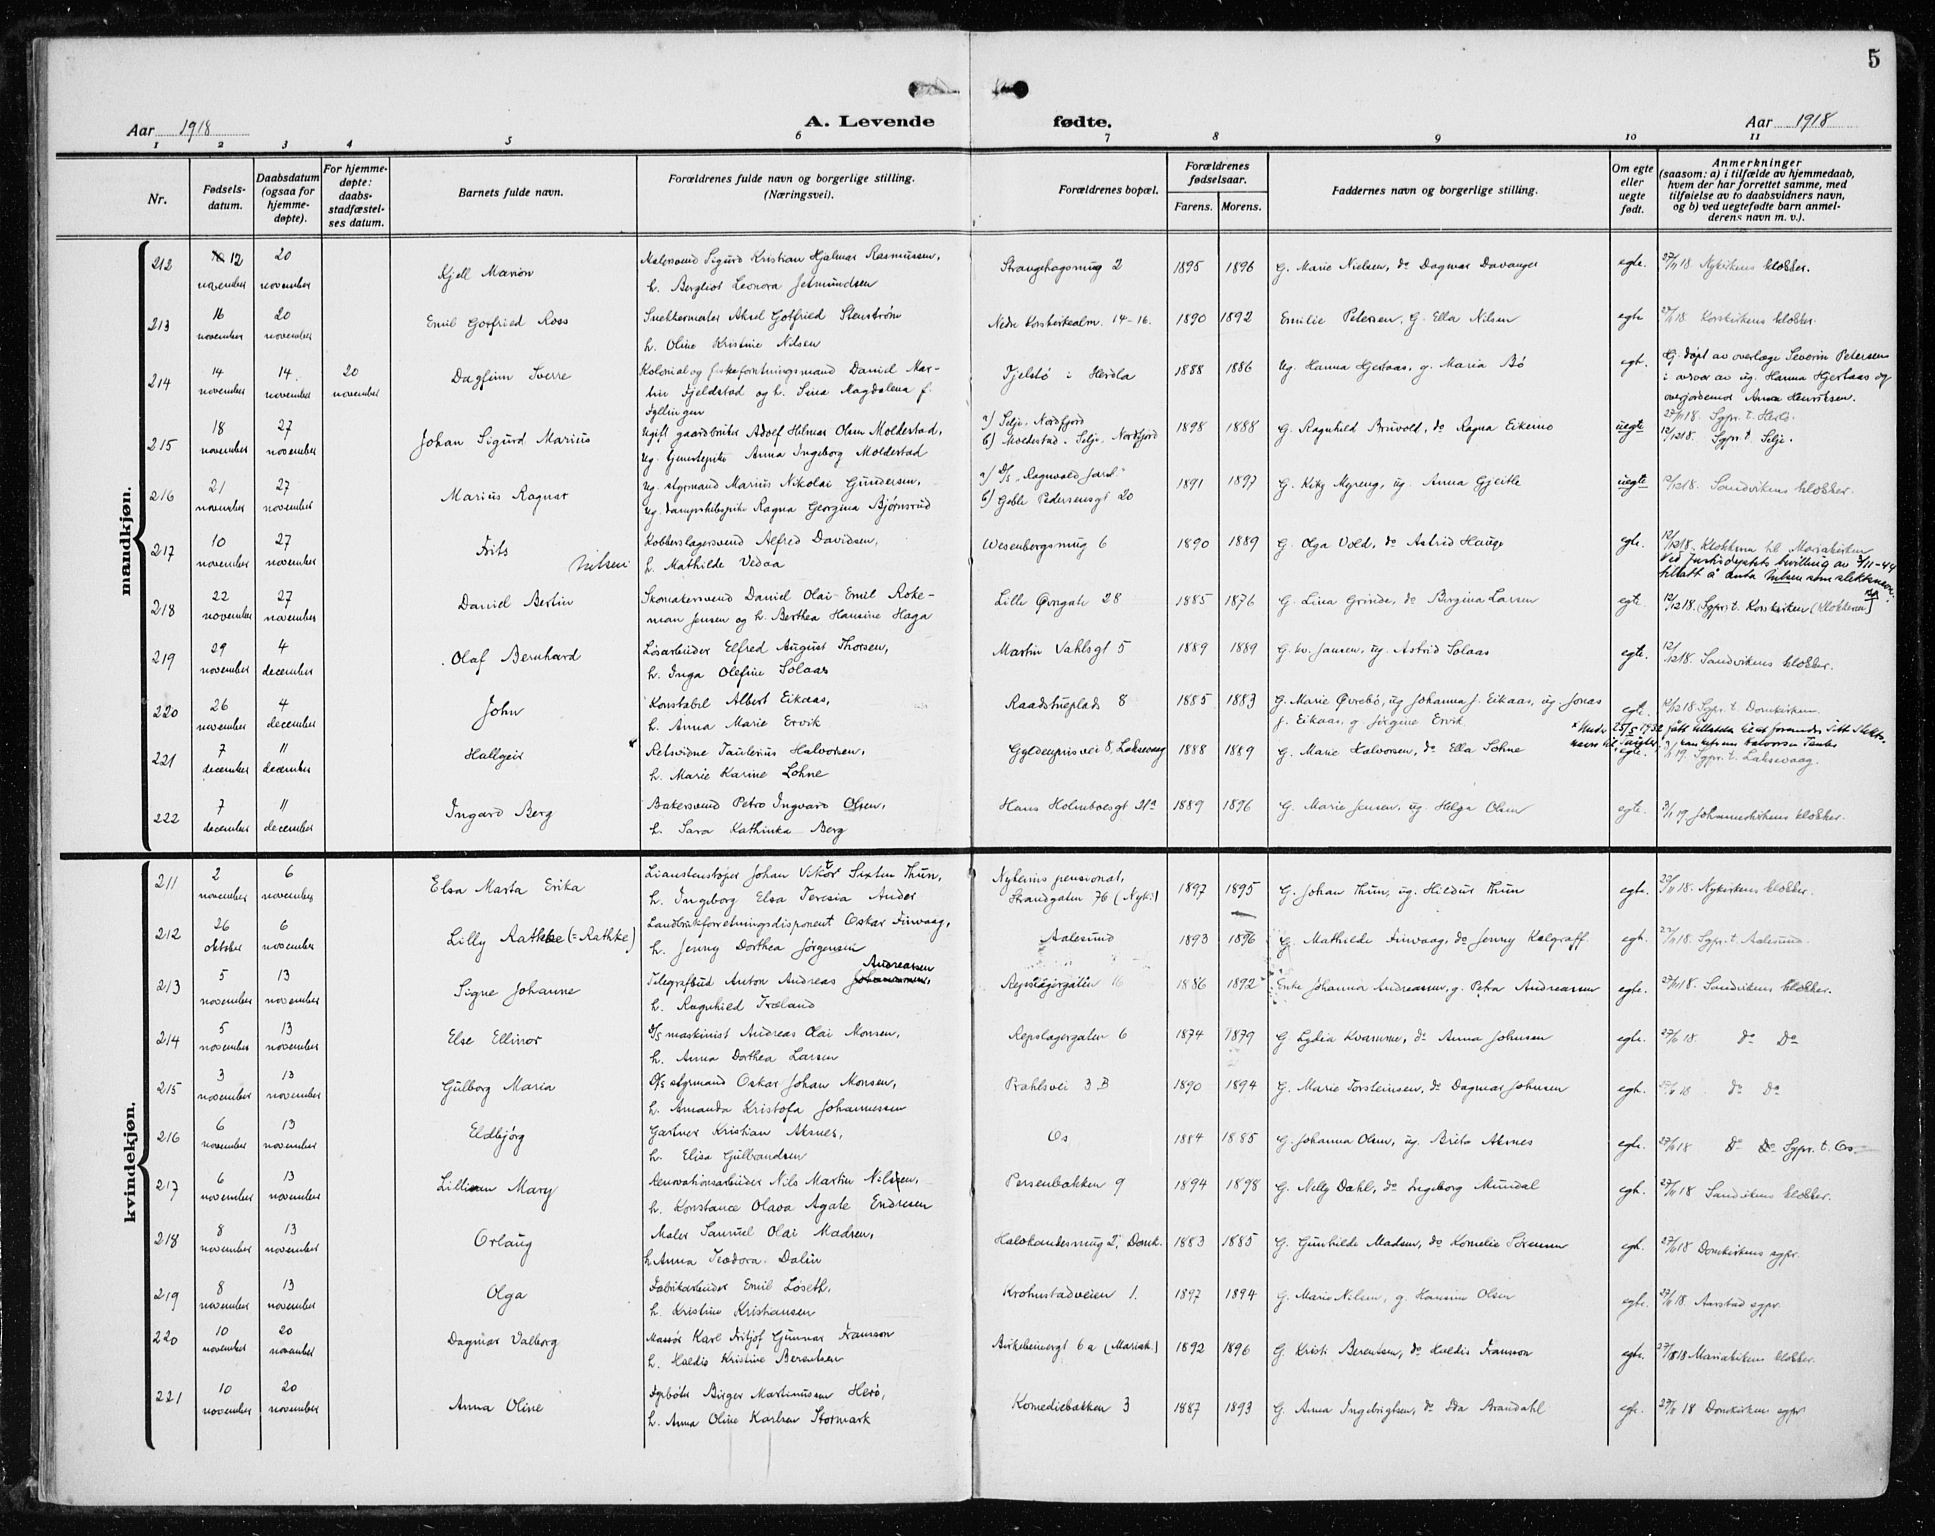 5
Aar 1918
A. Levende fødte.
Aar 1918
1 2 3 4 5 6 7 8 9 10 11
Nr.
Fødsels-
datum.
Daabsdatum
(ogsaa for
hjemme-
døpte).
For hjemme-
døpte:
daabs-
stadfæstel-
ses datum.
Barnets fulde navn.
Forældrenes fulde navn og borgerlige stilling.
(Næringsvei).
Forældrenes bopæl.
Forældrenes
fødselsaar.
Farens. Morens.
Faddernes navn og borgerlige stilling.
Om egte
eller
uegte
født.
Anmerkninger
(saasom: a) i tilfælde av hjemmedaab,
hvem der har forrettet samme, med
tilføielse av to daabsvidners navn,
og b) ved uegtefødte barn anmel-
derens navn m. v.).
mandkjøn.
212 12 november 20 november Kjell Marion Malersvend Sigurd Kristian Hjalmar Rasmussen, Strangehagsmug 2 1895 1896 G. Marie Nielsen, do Dagmar Davanger egte. 27/11 18. Nykirkens klokker.
h. Bergliot Leonora Jetmundsen
213 16 november 20 november Emil Gotfried Ross Snekkermester Aksel Gotfried Stenstrøm Nedre Korskirkealm. 14-16. 1890 1892 Emilie Petersen, G. Ella Nilsen egte 27/11 18. Korskirkens klokker.
h. Oline Kristine Nilsen
214 14 november 14 november 20 november Dagfinn Sverre Kolonial og fiskeforretningsmand Daniel Mar- Fjelstø i Herdla 1888 1886 Ug. Hanna Hjertaas, g. Maria Bø egte. Hj. døpt av overlæge Severin Petersen
tin Fjeldstad og h. Sina Magdalena f. i nærvær av ug. Hanna Hjertaas og
Fyllingen overjordemor Anna Henriksen.
27/11 18. Sgpr. t. Herlø.
215 18 november 27 november Johan Sigurd Marius Ugift gaardbruker Adolf Hilmar Olsen Moldestad, a) Selje, Nordfjord 1898 1888 G. Ragnhild Bruvold, do Ragna Eikemo uegte 12/12 18. Sgpr. t. Selje.
Ug. Anna Ingeborg Moldestad b) Moldestad, Selje, Nordfjord
216 21 november 27 november Marius Ragnar Ug. styrmand Marius Nikolai Gundersen, a) D/S „Ragnvald Jarl" 1891 1897 G. Kitz Myreng, ug. Anna Gjeitle uegte 12/12 18. Sandvikens klokker.
Ug. dampskibspike Ragna Georgina Bjørnsrud b) Geble Pedersensgt 20
217 10 november 27 november Frits Nilsen Kobberslagersvend Alfred Davidsen, Wesenbergsmug 6 1890 1889 G. Olga Vold, do Astrid Hauge egte. 12/12 18. Klokkeren til Mariakirken
h. Mathilde Vedaa Ved Justisdeptets bevilling av 3/11-44
tillatt å anta Nilsen som slektsnavn.
218 22 november 27 november Daniel Bertin Skomakersvend Daniel Olai Emil Roke- Lille Øvregate 28 1885 1876 G. Lina Grinde, do Bergina Larsen egte. 12/12 18. (Sgpr) t. Korskirken (klokkeren)
man Jensen og h. Berthea Hansine Haga
219 29 november 4 december Olaf Bernhard Løsarbeider Elfred August Thorsen, Martin Vahlsgt 5 1889 1889 G. kv. Jansen, ug. Astrid Solaas egte. 12/12 18. Sandvikens klokker.
h. Inga Olefine Solaas
220 26 november 4 december John Konstabel Albert Eikaas, Raadstueplads 8 1885 1883 G. Marie Øvrebø, ug Johanna J. Eikaas, ug Jonas egte. 12/12 18 Sgpr. t. Domkirken
h. Anna Marie Ervik J. Eikaas, g Jørgine Ervik
221 7 december 11 december Hallgeir Retsvidne Taulerius Halvorsen, Gyldenprisvei 8, Laksevaag 1888 1889 G. Marie Halvorsen, do Ella Lohne egte. 3/1 19. Sgpr. t. Laksevaag.
h. Marie Karine Lohne
222 7 december 11 december Ingard Berg Bakersvend Petro Ingvard Olsen, Hans Holmboesgt 21a 1889 1896 G. Marie Jensen, ug. Helga Olsen egte. 3/1 19 Johanneskirkens klokker.
h. Sara Kathinka Berg
kvindekjøn.
211 2 november 6 november Elsa Marta Erika Johan Viktor Sixten Thun, Nyheims pensionat, 1897 1895 G. Johan Thun, ug. Hildur Thun egte. 27/11 18. Nykirkens klokker.
h. Ingeborg Elsa Teresia Ander Strandgaten 76 (Nyk.)
212 26 oktober 6 november Lilly Rathke (= Rathke) Landbrukforretningsdisponent Oskar Finvaag, Aalesund 1893 1896 G. Mathilde Finvaag, do Jenny Kalgraff egte. 27/11 18. Sgpr. t. Aalesund.
h. Jenny Dorthea Jørgensen
213 5 november 13 november Signe Johanne Telegrafbud Anton Andreas Johannesen, Andreassen Repslagergaten 16 1886 1892 Enke Johanna Andreassen, g. Petra Andreassen egte. 27/11 18. Sandvikens klokker.
h. Ragnhild Træland
214 5 november 13 november Else Ellinor D/S maskinist Andreas Olai Monsen, Repslagergaten 6 1874 1879 G. Lydia Kvamme, do Anna Johnsen egte. 27/11 18. do Do
h. Anna Dorthea Larsen
215 3 november 13 november Gulborg Maria D/S styrmand Oskar Johan Monsen, Prahlsvei 3.B 1890 1894 G. Marie Torsteinsen, do Dagmar Johnsen egte. 27/11 18 do Do
h. Amanda Kristofa Johannessen
216 6 november 13 november Eldbjørg Gartner Kristian Aksnes, Os 1884 1885 G. Johanna Olsen, ug. Brita Aksnes egte. 27/11 18 Do Do Sgpr. t. Os.
h. Elisa Gulbrandsen
217 6 november 13 november Lillian Mary Renovationsarbeider Nils Martin Nilsen, Persenbakken 9 1894 1898 G. Nelly Dahl, do Ingeborg Mundal egte. 27/11 18 Sandvikens klokker.
h. Konstance Olava Agate Endresen
218 8 november 13 november Orlaug Maler Samuel Olai Madsen, Halvkandesmug 2, Domk. 1883 1885 G. Gunhilde Madsen, do Kornelie Sørensen egte. 27/11 18 Domkirkens sgpr.
h. Anna Teodora Dalin
219 8 november 13 november Olga Fabrikarbeider Emil Løseth, Krohnstadveien 1. 1897 1894 G. Marie Nilsen, g. Hansine Olsen egte. 27/11 18. Aarstad sgpr.
h. Kristine Kristiansen
220 10 november 20 november Dagmar Valborg Massør Karl Fritjof Gunnar Fransson Birkebeinergt 6a (Mariak.) 1892 1896 G. Kristi Berentsen, do Haldis Fransson egte. 27/11 18 Mariakirkens klokker.
h. Haldis Kristine Berentsen
221 10 november 20 november Anna Oline Fyrbøter Birger Martinussen Herø, Komediebakken 3 1887 1893 G. Anna Ingebrigtsen, do Ida Brandahl egte. 27/11 18 Domkirkens sgpr
h. Anna Oline Karlsen Stormark